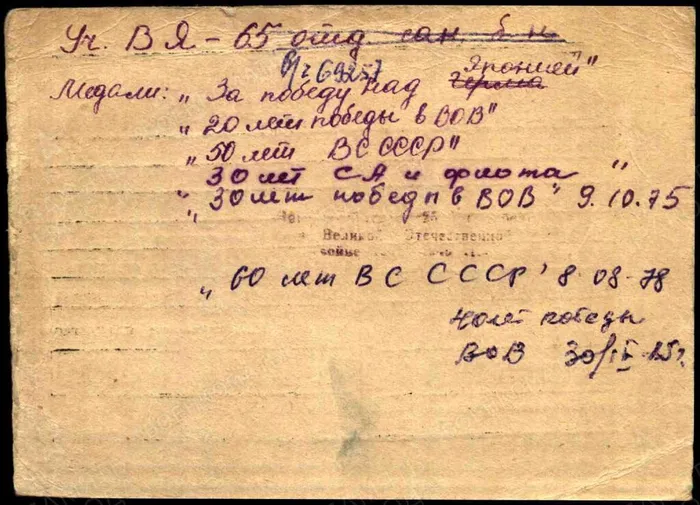 Уч. В Я - 65 отд. сан. б-н
в/ч 69257
Японией"
Медали: „За победу над Герма
„20 лет победы в ВОВ"
„50 лет ВС СССР"
30 лет СА и флота "
„30 лет победы в ВОВ" 9.10.75
„
Великой Отечественной
войне
„60 лет ВС СССР" 8.08.78
40 лет победы
ВОВ